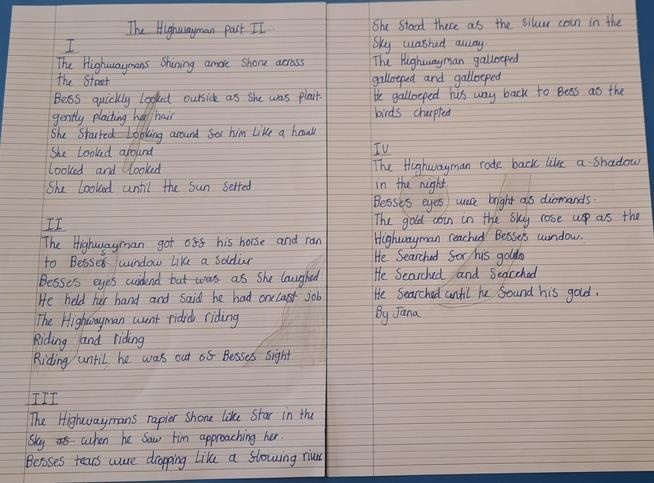 The Highwayman part II
I
The Highwaymans Shining amor Shone across
the Street
Bess quickly Looked outside as She was plait-
gently plaiting her hair
She Started Looking around for him Like a hawk
She Looked around
Looked and Looked
She Looked until the Sun Setted
II
The Highwayman got off his horse and ran
to Besses window Like a Soldier
Besses eyes widend but was as She Laughed
He held her hand and Said he had one Last job
The Highwayman went ridids riding
Riding and riding
Riding until he was out of Besses Sight
III
The Highwaymans rapier Shone Like Star in the
Sky as when he Saw tim approaching her.
Besses tears were dropping Like a flowing river
She Stood there as the Silver coin in the
Sky washed away.
The Highwayman galloeped
galloeped and galloeped
He galloeped his way back to Bess as the
birds cherpted
IV
The Highwayman rode back like a Shadow
in the night.
Besses eyes were bright as diomands.
The gold coin in the Sky rose up as the
Highwayman reached Besses window.
He Searched for his gold
He Searched and Searched
He Searched until he found his gold.
By Jana